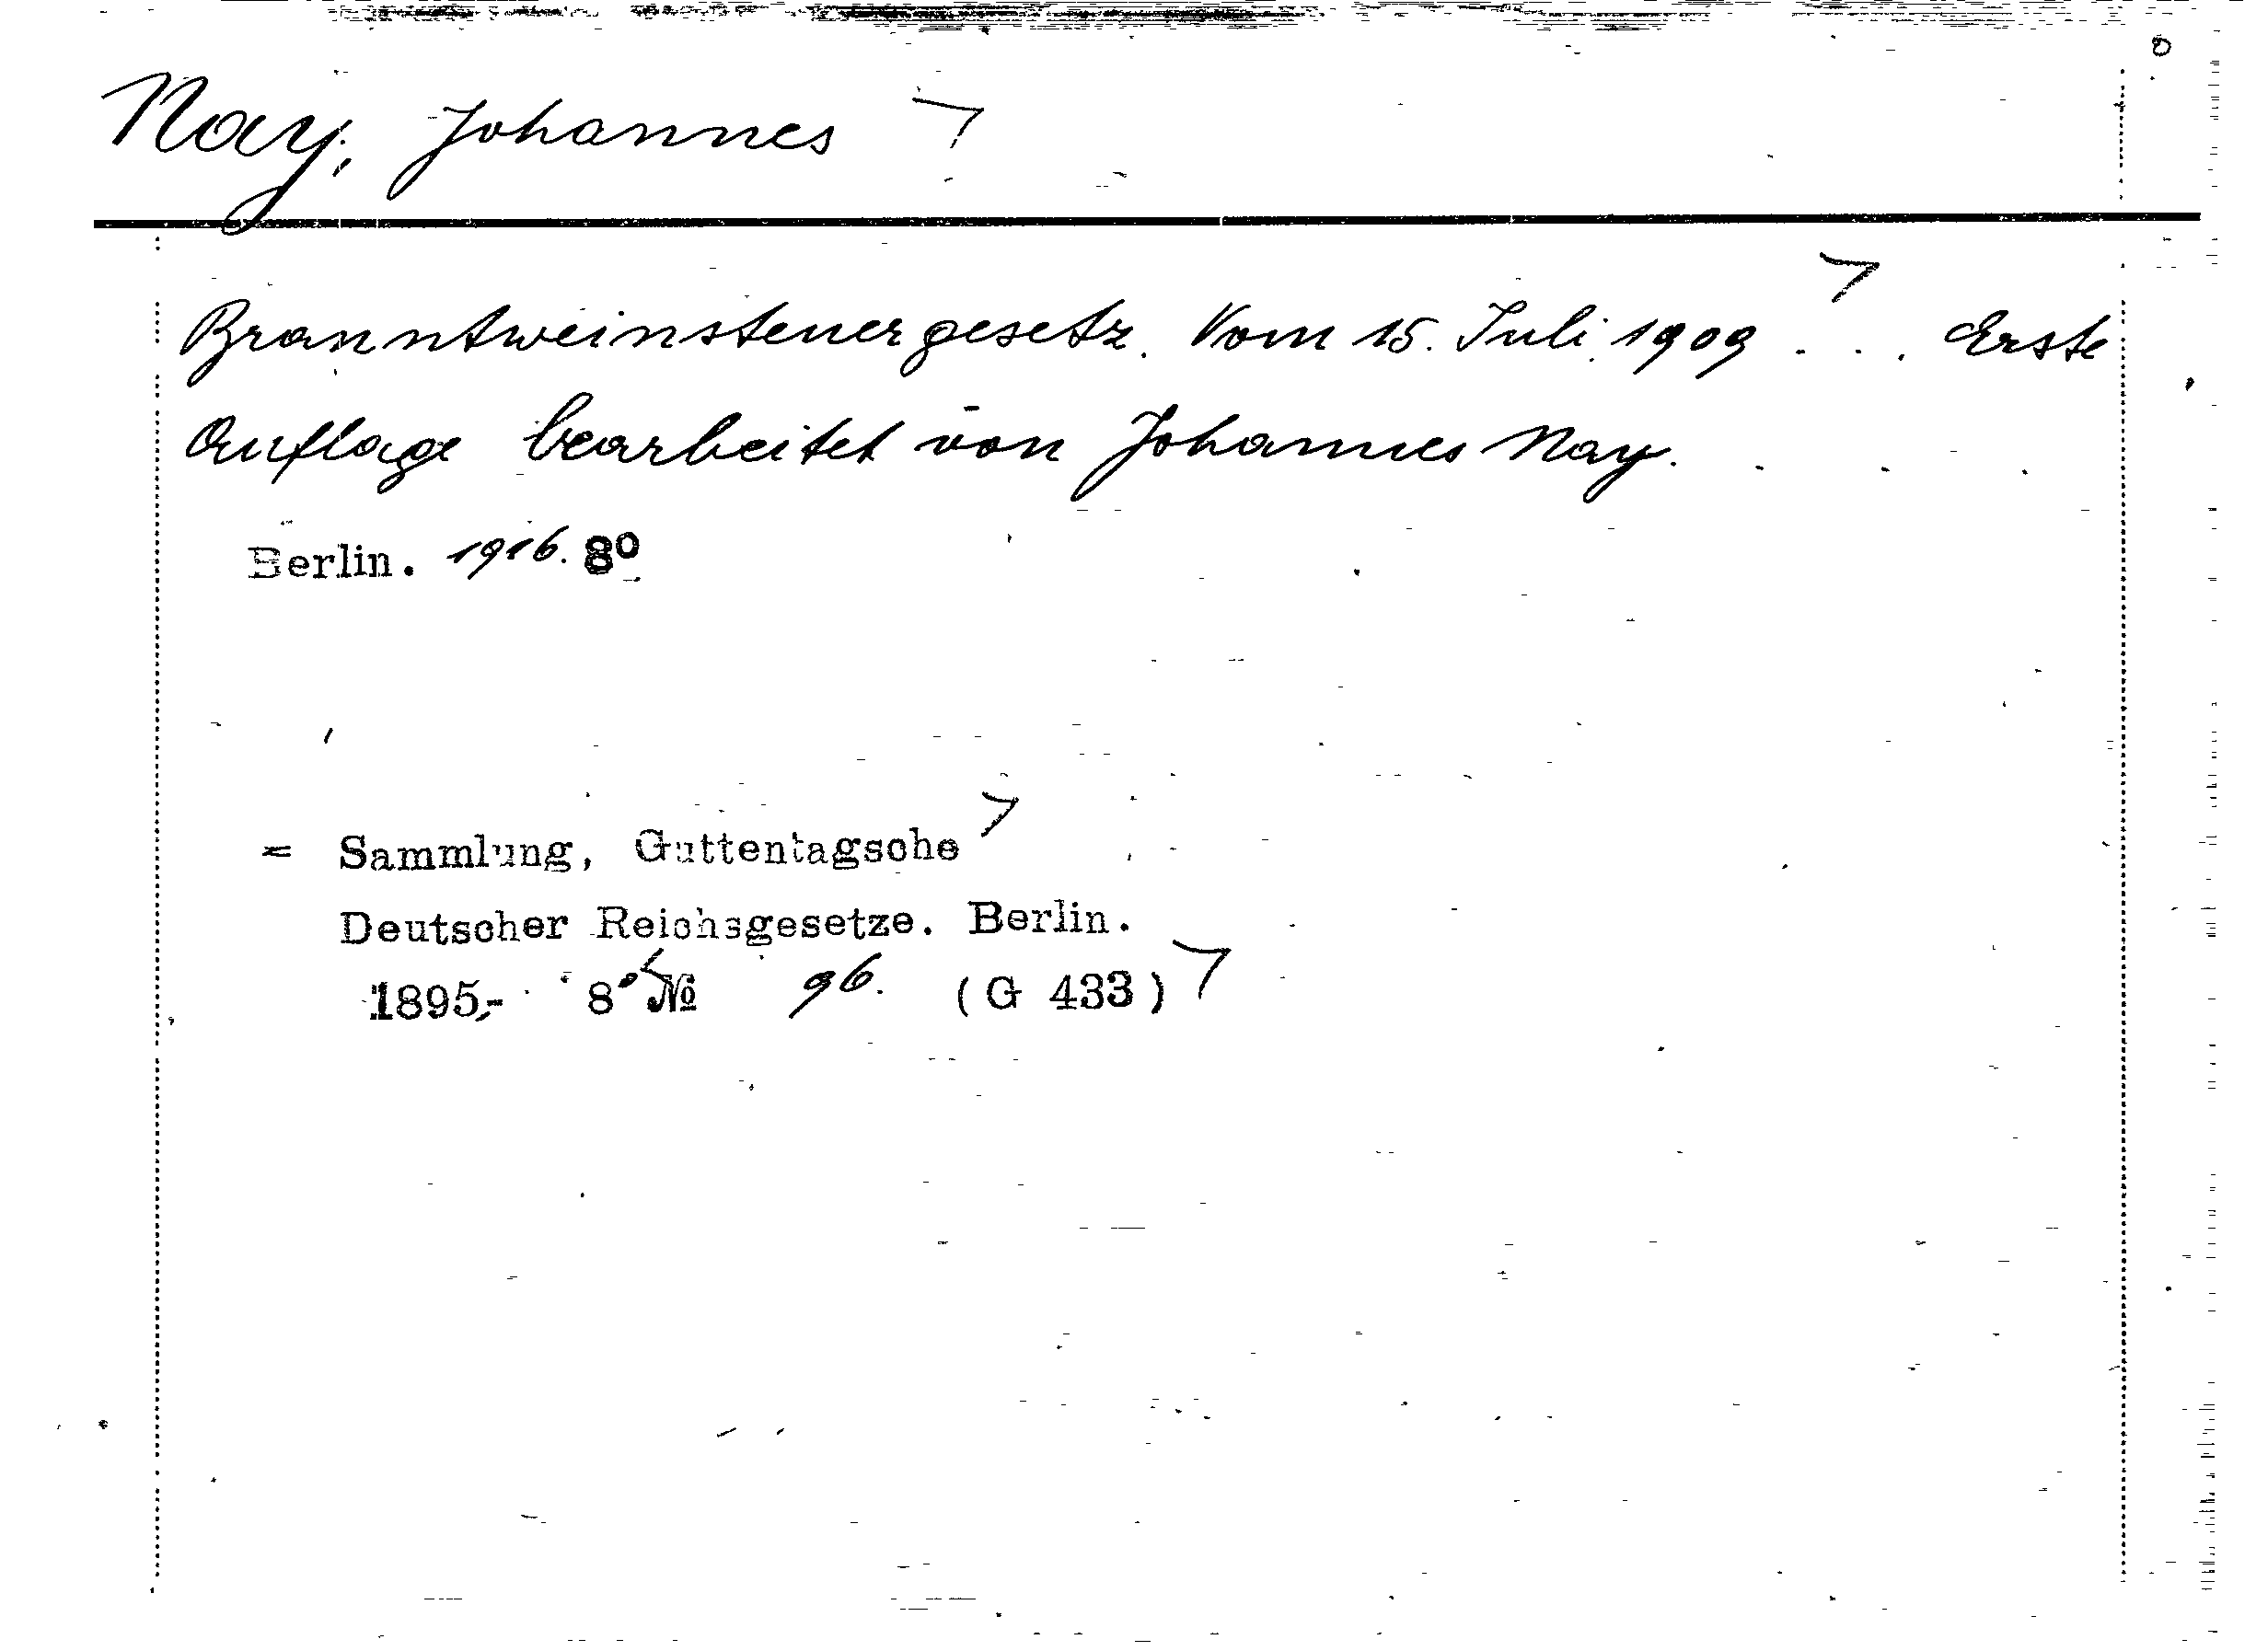 Nay, Johannes
Branntweinsteuergesetz. Vom 15. Juli 1909 . . . Erste
Auflage bearbeitet von Johannes Nay.
Berlin. 1916. 8º
= Sammlung, Guttentagsche
Deutscher Reichsgesetze. Berlin.
1895,- 8º № 96. (G 433)